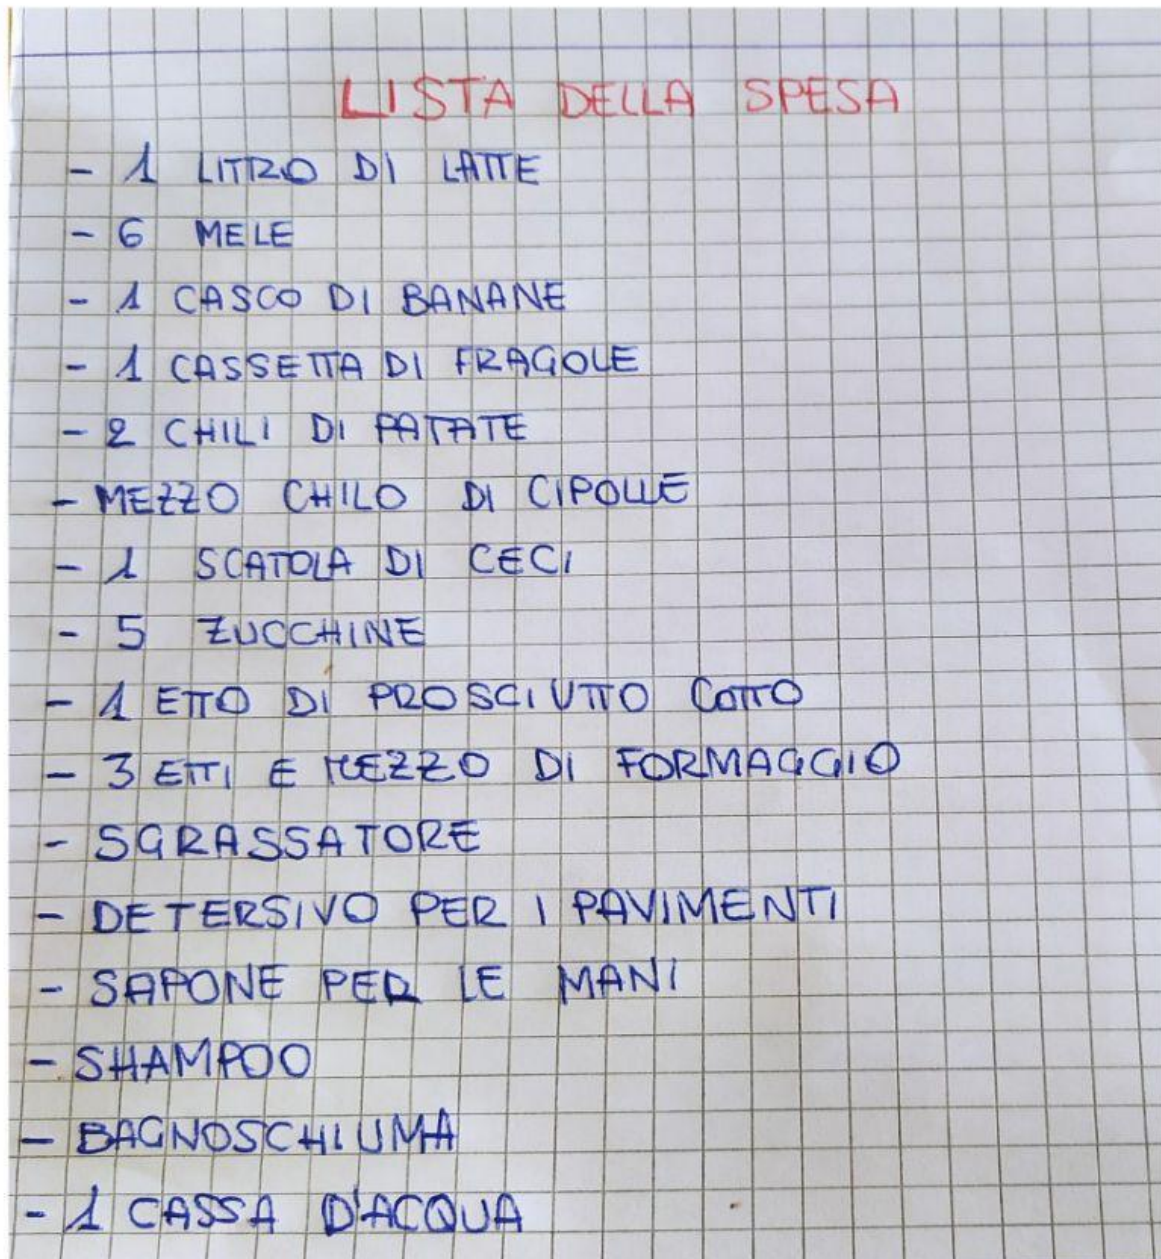 LISTA DELLA SPESA
- 1 LITRO DI LATTE
- 6 MELE
- 1 CASCO DI BANANE
- 1 CASSETTA DI FRAGOLE
- 2 CHILI DI PATATE
- MEZZO CHILO DI CIPOLLE
- 1 SCATOLA DI CECI
- 5 ZUCCHINE
- 1 ETTO DI PROSCIUTTO COTTO
- 3 ETTI E MEZZO DI FORMAGGIO
- SGRASSATORE
- DETERSIVO PER I PAVIMENTI
- SAPONE PER LE MANI
- SHAMPOO
- BAGNOSCHIUMA
- 1 CASSA D'ACQUA